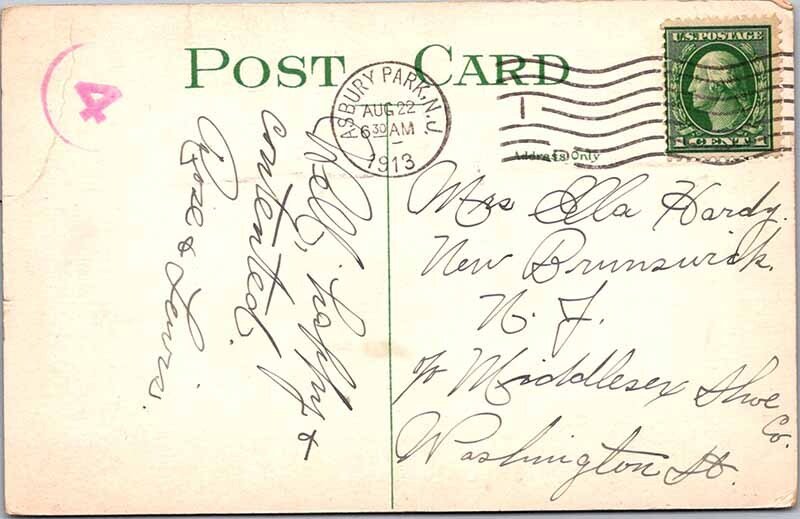 POST CARD
4
ASBURY PARK, N.J.
AUG 22
6 30 AM
1913
1
U.S. POSTAGE
1 CENT 1
Address Only
Well, happy &
contented,
Rose & Lewis.
Mrs Ella Hardy.
New Brunswick.
N. J.
℅ Middlesex Shoe
Co.
Washington St.